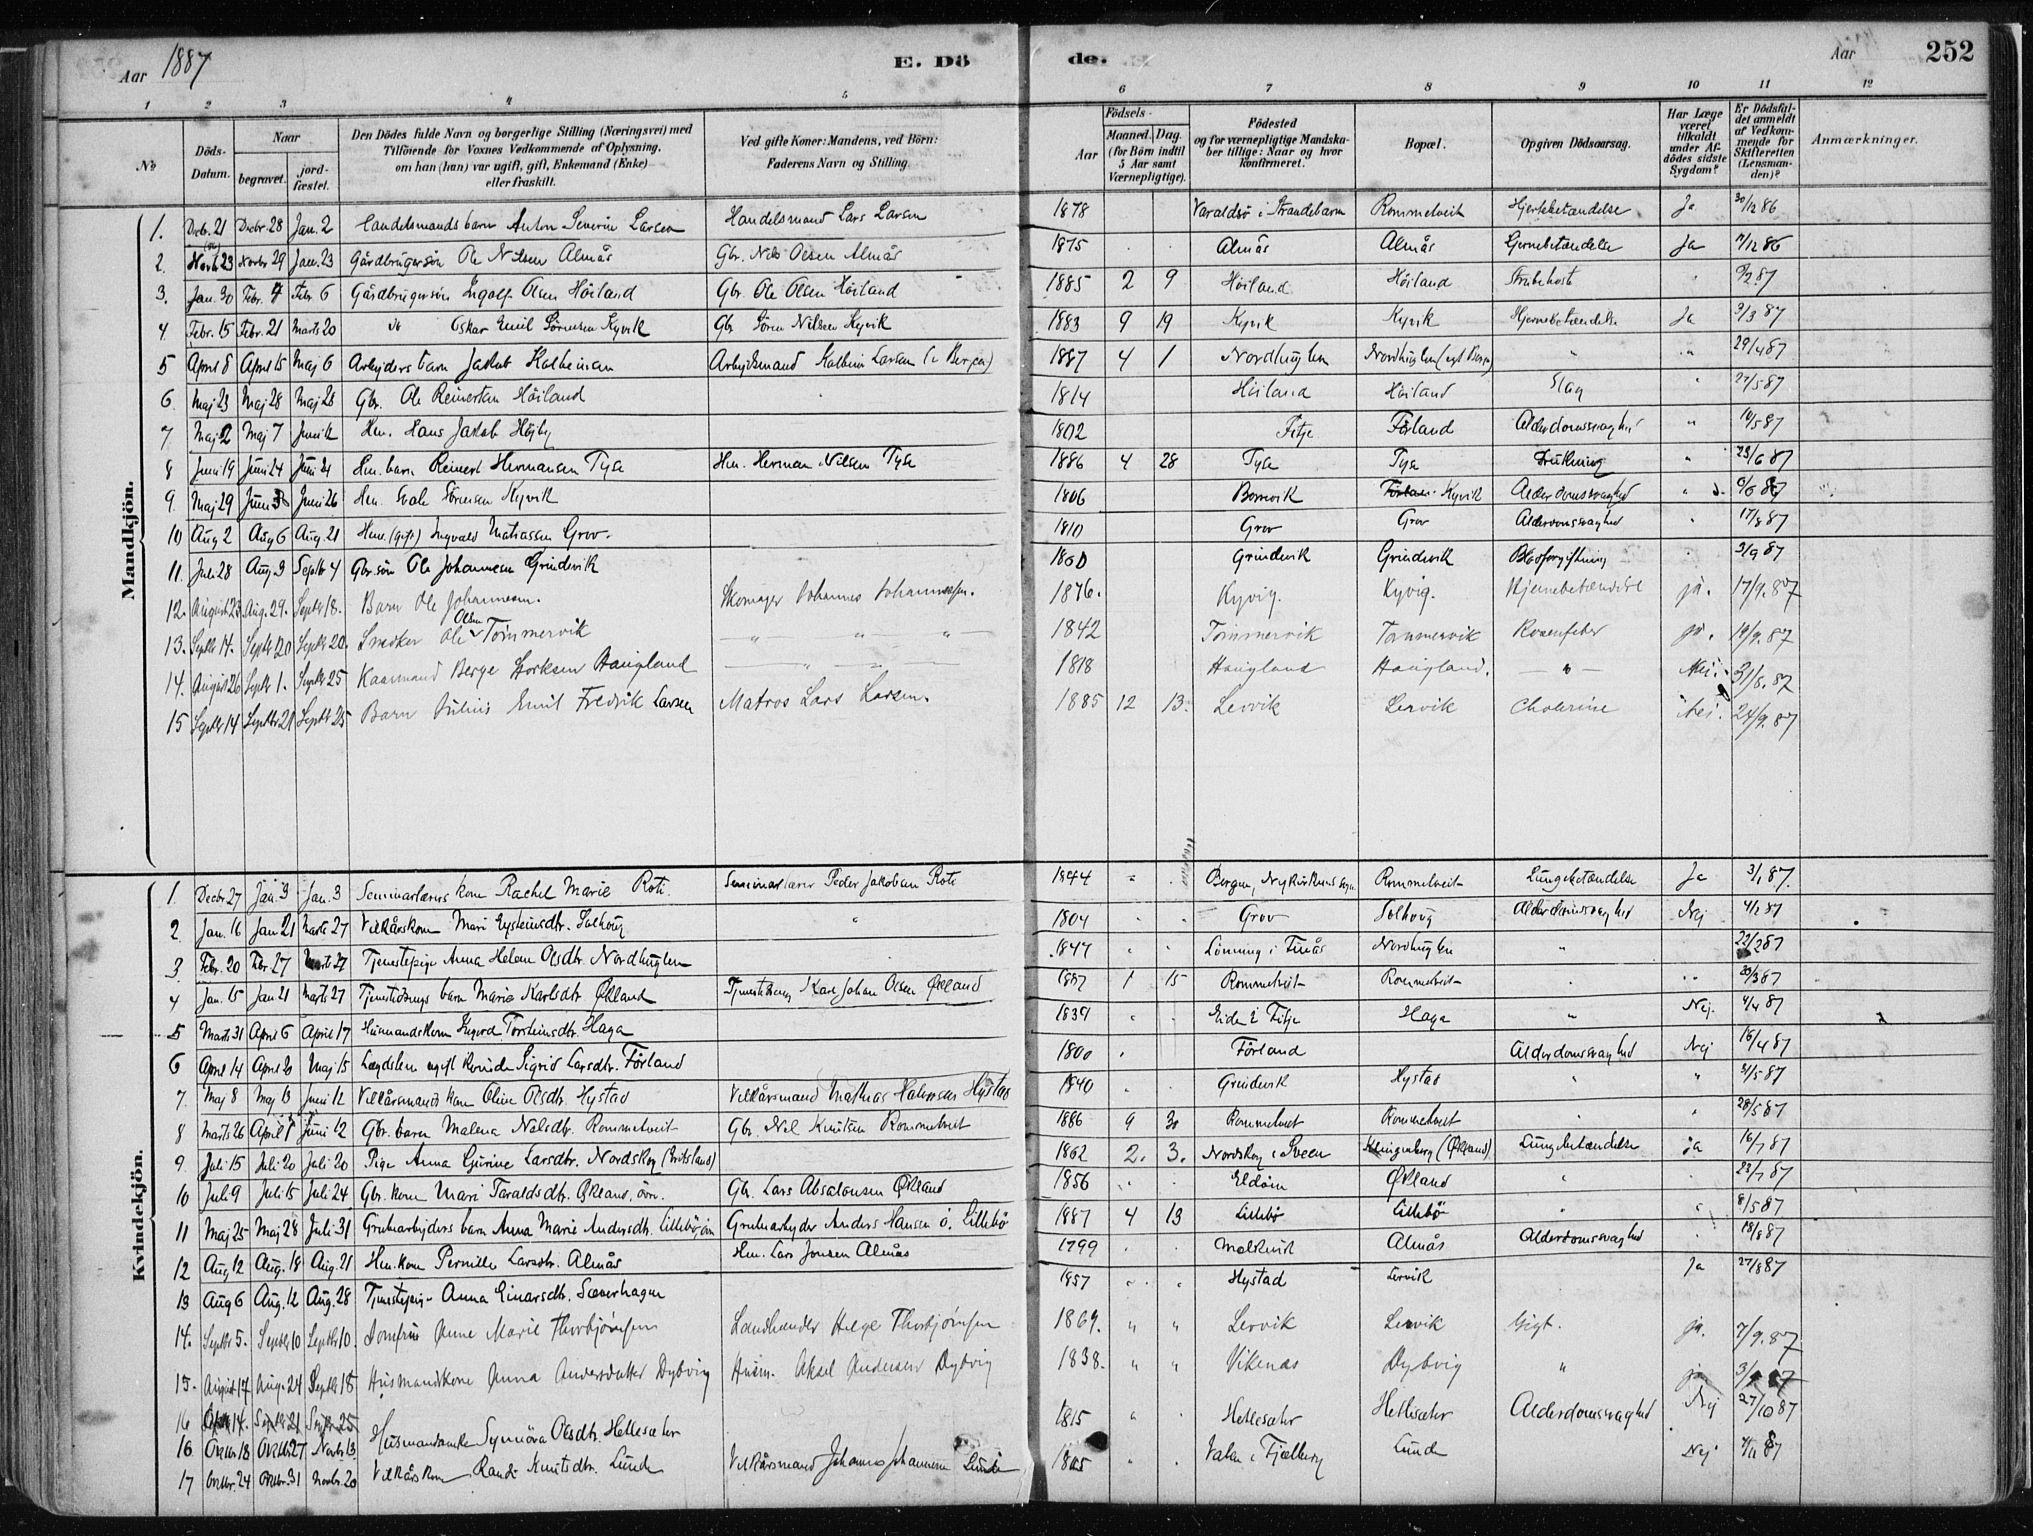 Aar 1887 E. Dö de. Aar 252
1 2 3 4 5 6 7 8 9 10 11 12
No Döds-Datum. Naar begravet. jord-fæstet. Den Dödes fulde Navn og borgerlige Stilling (Næringsvei) med Tilföiende for Voxnes Vedkommende af Oplysning, om han (hun) var ugift, gift, Enkemand (Enke) eller fraskilt. Ved gifte Koner: Mandens, ved Börn: Faderens Navn og Stilling. Födsels- Aar Maaned. Dag. (for Börn indtil 5 Aar samt Værnepligtige). Födested og for værnepligtige Mandska-ber tillige: Naar og hvor konfirmeret. Bopæl. Opgiven Dödsaarsag. Har Læge været tilkaldt under Af-dödes sidste Sygdom? Er Dödsfal-det anmeldt af Vedkom-mende for Skifteretten (Lensman-den)? Anmærkninger.
Mandkjön.
1. Decb. 21 Decbr. 28 Jan. 2 Handelsmands barn Anton Severin Larsen Handelsmand Lars Larsen 1878 Varaldsö i Strandebarm Rommelveit Hjertebetændelse Ja 30/12 86
2. 23 Novbr 29 Jan. 23 Gårdbrugersön Ole Nilsen Almås Gbr. Nils Olsen Almås 1875 Almås Almås Ja 7/12 86
3. Jan. 30 Febr. 4 Febr. 6 Gårdbrugersön Ingolf Olsen Höiland Gbr. Ole Olsen Höiland 1885 2 9 Höiland Höiland Strubehoste
4. Febr. 15 Febr. 21 Marts 20 do Oskar Emil Sörensen Kyvik Gbr. Sören Nilsen Kyvik 1883 9 19 Kyvik Kyvik Hjernebetændelse Ja 3/3 87
5 April 8 April 15 Maj 6 Arbejders barn Jakob Kolbeinsen Arbejdsmand Kolbein Larsen (i Bergen) 1887 4 1 Nordhuglen Nordhuglen (egtl Bergen) " " 29/4 87
6. Maj 23 Maj 28 Maj 28 Gbr. Ole Reinertsen Höiland 1814 Höiland Höiland Slag " 27/5 87
7 Maj 2 Maj 7 Juni 12 Hm. Hans Jakob 1802 Fitje Förland Alderdomssvaghed " 10/5 87
8 Juni 19 Juni 24 Juni 24 Hm. barn Reinert Hermansen Tyse Hm. Herman Nilsen Tyse 1886 4 28 Tyse Tyse Drukning " 23/6 87
9 Maj 29 Juni 3 Juni 26 Hm. Sörensen Kyvik 1806 Kyvik Alderdomssvaghed " 6/6 87
10 Aug 2 Aug 6 Aug. 21 Hm. (gift) Ingvald Matiassen Grov. 1810 Grov Grov Alderdomssvaghed 17/8 87
11. Juli 28 Aug. 3 Septb 4 Gbr. sön Ole Johannesen Grindevik 1860 Grindevik Grindevik Blodforgiftning 3/9 87
12. August 23 Aug. 29. Septbr 18. Barn Ole Johannesen. Skomager Johannes Johannessen. 1876. Kyvig. Kyvig. Hjernebetændelse ja. 17/9. 87
13. Septb 14. Septb 20 Septb 20. Snedker Ole Olsen Tömmervik " " " 1842 Tömmervik Tömmervik Rosenfeber ja. 19/9. 87
14. August 26 Septb 1. Septb 25 Kaarmand Berge Haugland " 1818 Haugland Haugland. " Nei. 31/8. 87
15 Septbr 14 Septbr 21 Septbr 25 Barn Julius Emil Fredrik Larsen Matros Lars Larsen. 1885 12 13. Lervik Lervik Cholerine Nei. 24/9. 87
Kvindekjön.
1. Decbr. 27 Jan. 3 Jan. 3 Seminarlærers kone Rachel Marie Roti Seminarlærer Peder Jakobsen Roti 1844 Bergen, Nykirkens sogn Rommelveit Lungebetændelse Ja 3/1 87.
2. Jan. 16 Jan 21 Marts 27 Vilkårskone Mari Eysteinsdtr. Solhoug " 1804 Grov Solhoug Alderdomssvaghed Nej 4/2 87
3 Febr. 20 Febr. 27 Marts 27 Tjenestepige Anna Helene Olsdtr. Nordhuglen 1847 Lönning i Finås Nordhuglen " 22/2 87
4 Jan. 15 Jan 21 Marts 27 Tjenestedrengs barn Marie Karlsdtr. Økland Tjenestedreng Karl Johan Olsen Økland 1887 1 15 Rommelveit Rommelveit " 20/3 87
5 Marts 31 April 6 April 17 Husmandskone Ingerd Torsteinsdtr. Haga 1839 Eide i Fitje Haga " Nej. 4/4 87
6 April 14 April 20 Maj 15 Lægdslem ugift Kvinde Sigrid Larsdtr. Förland 1800 Förland Alderdomssvaghed Nej 16/4 87
7. Maj 8 Maj 13 Juni 12 Vilkårsmands kone Oline Olsdtr. Hystad Vilkårsmand Mathias Hystad 1840 Grindevik Hystad " " 31/5 87
8 Marts 26 April 1 Juni 12 Gbr. barn Malena Nilsdtr. Rommetveit Gbr. Nil Knutsen Rommetveit 1886 9 30 Rommetveit Rommetveit " " 28/5 87
9. Juli 15 Juli 20 Juli 20 Pige Anna Gjurine Larsdtr. Nordskog 1862 2. 3. Nordskog i Sveen Klingenberg (Økland) Lungebetændelse Ja 16/7 87
10 Juli 9 Juli 15 Juli 24 Gbr. kone Mari Taraldsdtr. Økland, övr. Gbr. Lars Absalonsen Økland 1856 Eldöen Økland " 23/7 87
11 Maj 25 Maj 28 Juli 31 Grubearbejders barn Anna Marie Andersdtr. Lillebö Grubearbejder Anders Hansen ö. Lillebö 1887 4 13 Lillebö Lillebö " " 8/5 87
12 Aug 12 Aug. 18 Aug. 21 Hm. kone Pernille Larsdtr. Almås Hm. Lars Jonsen Almås 1799 Almås Alderdomssvaghed 18/8 87
13 Aug 6 Aug. 12 Aug. 28 Tjenestepige Anna Einarsdtr. Sæverhagen 1857 Hystad Lervik Ja 27/8 87
14. Septbr 5. Septbr 10 Septbr 10. Jomfru Anne Marie Thorbjörnsen Landhandler Helge Thorbjörnsen 1869. " " Lervik Lervik Gigt. ja. 7/9. 87
15. August 17 Aug. 24 Septb 18 Husmandskone Anna Andersdatter Dybvig Husm. Aksel Andersen Dybvig 1838. " " Vikenes Dybvig " ja
16 14. Septb 21 Septbr 25
16 Oktbr 18 Oktbr 27 Novbr. 13 Husmandsenke Synnöva Olsdtr. Hellesæter 1815 " Hellesæter Hellesæter Alderdomssvaghed Nej 27/10 87
17 Oktbr. 24 Oktbr. 31 Novbr. 20 Vilkårskone Randi Knutsdtr. Lunde Vilkårsmand Johannes Johannesen Lunde Valen i Fjelberg Lunde Nej 4/11 87